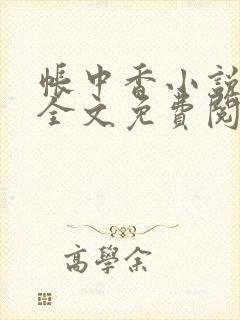 帳中香小説
全文免費閱
高學余